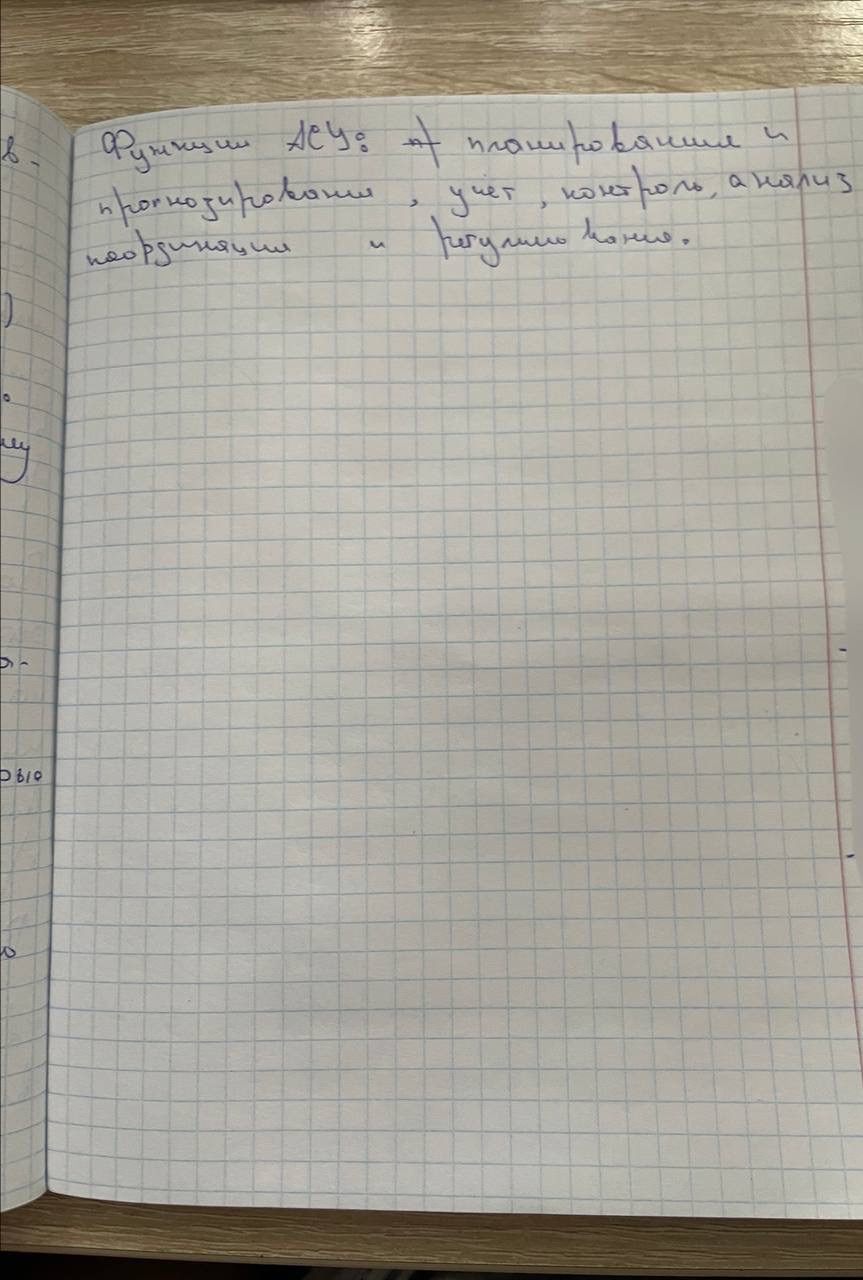 Функции АСУ: планирования и
прогнозирования, учёт, контроль, анализ
координации и регулиювания.
в.
)
му
я-
овıо
ю